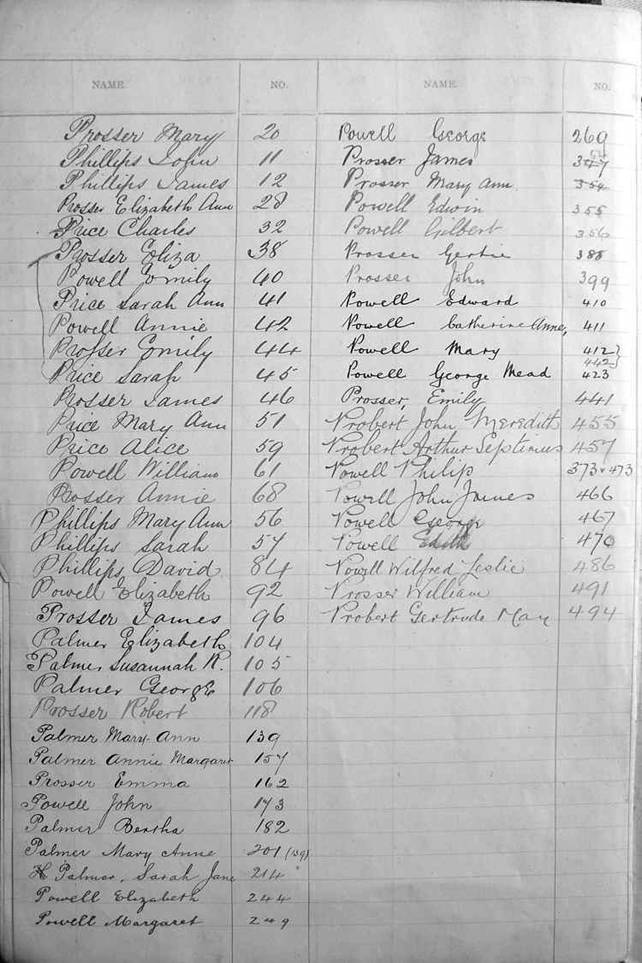 NAME. NO. NAME. NO.
Prosser Mary 20
Phillips John 11
Phillips James 12
Prosser Elizabeth Ann 28
Price Charles 32
Prosser Eliza 38
Powell Emily 40
Price Sarah Ann 41
Powell Annie 42
Prosser Emily 44
Price Sarah 45
Prosser James 46
Price Mary Ann 51
Price Alice 59
Powell William 61
Prosser Annie 68
Phillips Mary Ann 56
Phillips Sarah 57
Phillips David 84
Powell Elizabeth 92
Prosser James 96
Palmer Elizabeth 104
Palmer Susannah R. 105
Palmer George 106
Prosser Robert 118
Palmer Mary Ann 139
Palmer Annie Margaret 157
Prosser Emma 162
Powell John 173
Palmer Bertha 182
Palmer Mary Anne 201 (139)
Palmer, Sarah Jane 214
Powell Elizabeth 244
Powell Margaret 249
Powell George 269
Prosser James
Prosser Mary Ann. 354
Powell Edwin 355
Powell Gilbert 356
Prosser Gertie 385
Prosser John 399
Powell Edward 410
Powell Catherine Anne, 411
Powell Mary 412}
442}
Powell George Mead 423
Prosser, Emily 441
Probert John Meredith 455
Probert Arthur Septimus 457
Powell Philip 373 + 473
Powell John James 466
Powell George 467
Powell Edith 470
Powell Wilfred Leslie 486
Prosser William 491
Probert Gertrude May 494